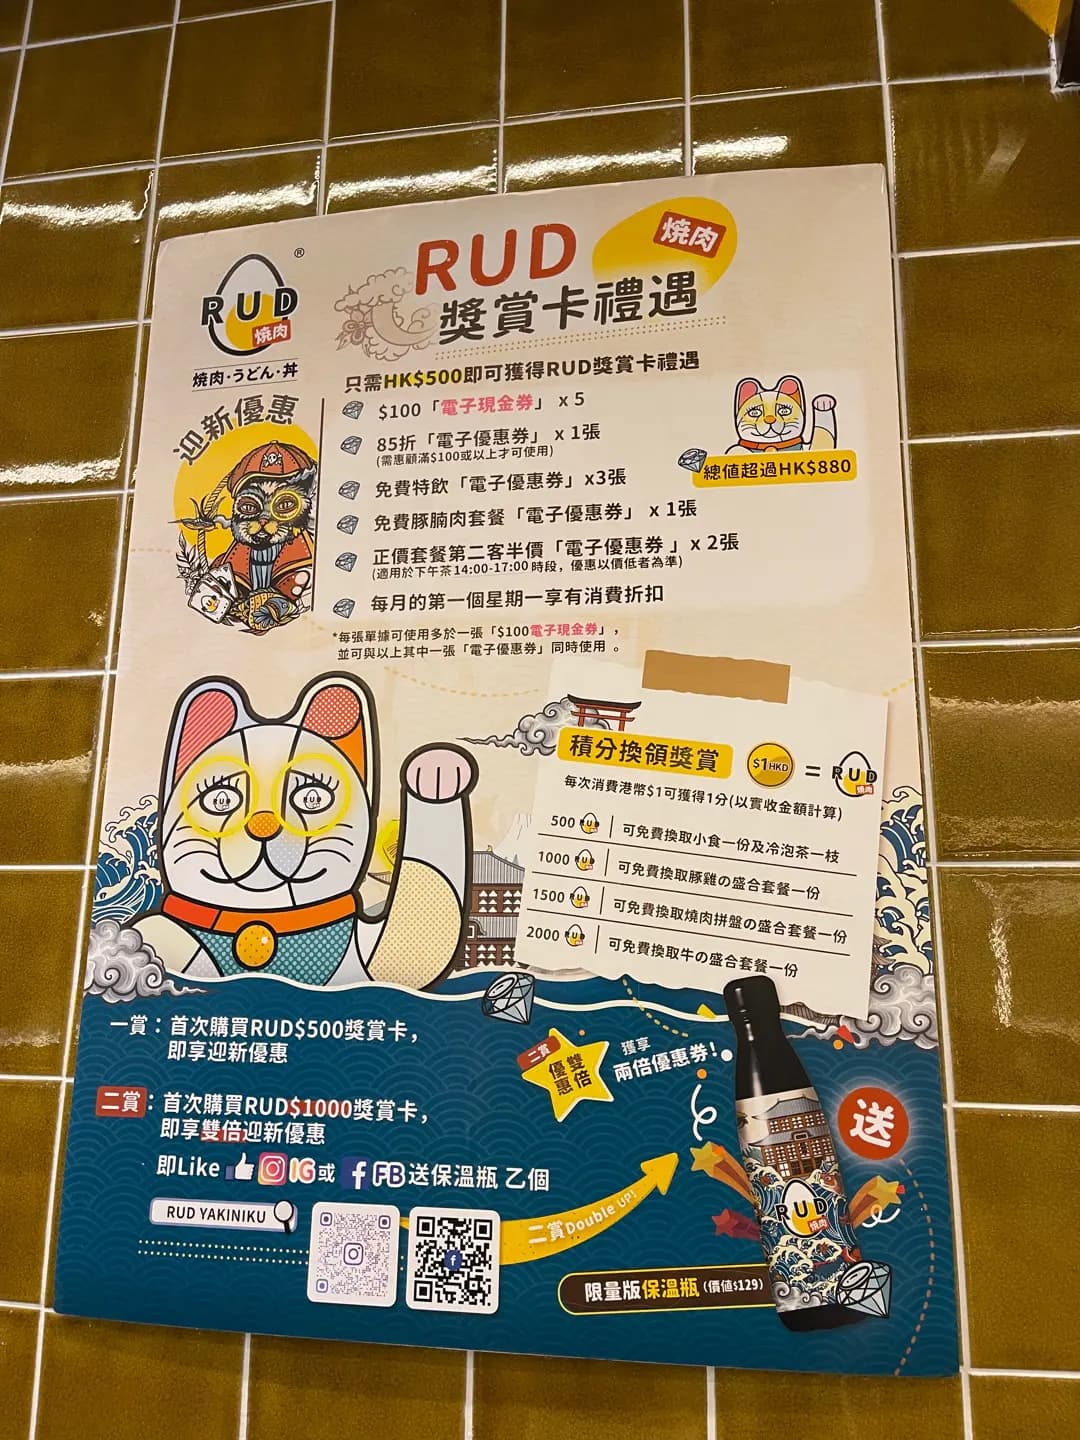 RUD
燒肉
獎賞卡禮遇
®
RUD
焼肉
焼肉・うどん・丼
迎新優惠
只需HK$500即可獲得RUD獎賞卡禮遇
$100「電子現金券」 x 5
85折「電子優惠券」 x 1張
(需惠顧滿$100或以上才可使用)
免費特飲「電子優惠券」x3張
免費豚腩肉套餐「電子優惠券」 x 1張
正價套餐第二客半價「電子優惠券 」x 2張
(適用於下午茶14:00-17:00時段，優惠以價低者為準)
每月的第一個星期一享有消費折扣
總值超過HK$880
*每張單據可使用多於一張「$100電子現金券」，
並可與以上其中一張「電子優惠券」同時使用 。
積分換領獎賞
$1HKD = RUD
燒肉
每次消費港幣$1可獲得1分(以實收金額計算)
500 RUD | 可免費換取小食一份及冷泡茶一枝
1000 RUD | 可免費換取豚雞の盛合套餐一份
1500 RUD | 可免費換取燒肉拼盤の盛合套餐一份
2000 RUD | 可免費換取牛の盛合套餐一份
一賞：首次購買RUD$500獎賞卡，
即享迎新優惠
二賞：首次購買RUD$1000獎賞卡，
即享雙倍迎新優惠
即Like IG或 FB送保溫瓶 乙個
RUD YAKINIKU
二賞
雙倍優惠
獲享
兩倍優惠券!
二賞Double UP!
送
RUD
燒肉
限量版保溫瓶(價值$129)